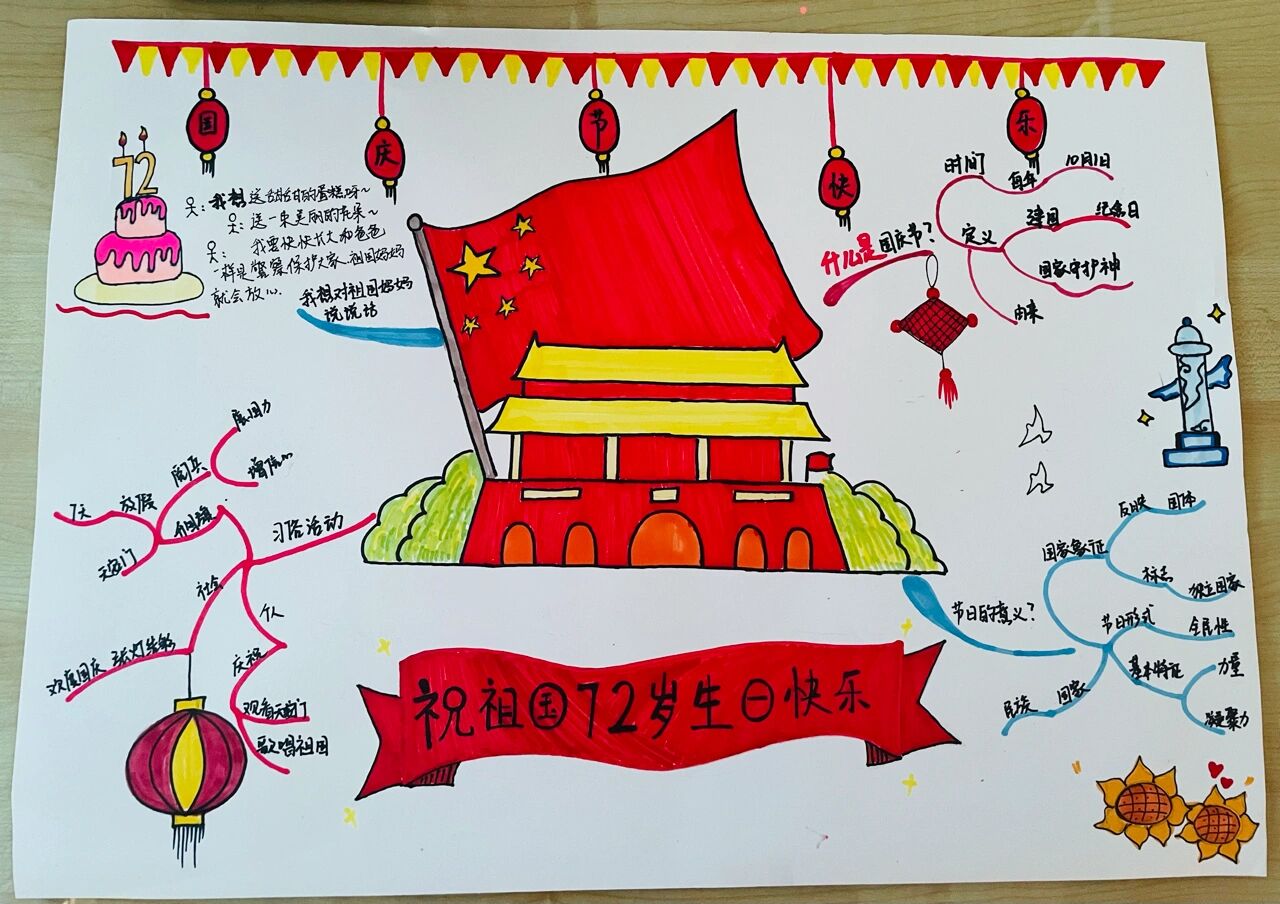 国庆节快乐
72
我想送甜甜的蛋糕呀~
送一束美丽的花朵~
我要快快长大和爸爸
一样是警察保护大家、祖国妈妈
就会放心.
我想对祖国妈妈
说说话
什么是国庆节?
时间
每年
10月1日
定义
建国
纪念日
国家守护神
由来
习俗活动
升国旗
阅兵
展国力
增信心
放假
7天
天安门
社会
张灯结彩
欢度国庆
个人
庆祝
观看天安门
歌唱祖国
节日的意义?
国家象征
反映
国体
标志
独立国家
节日形式
全民性
基本特征
力量
凝聚力
国家
民族
祝祖国72岁生日快乐